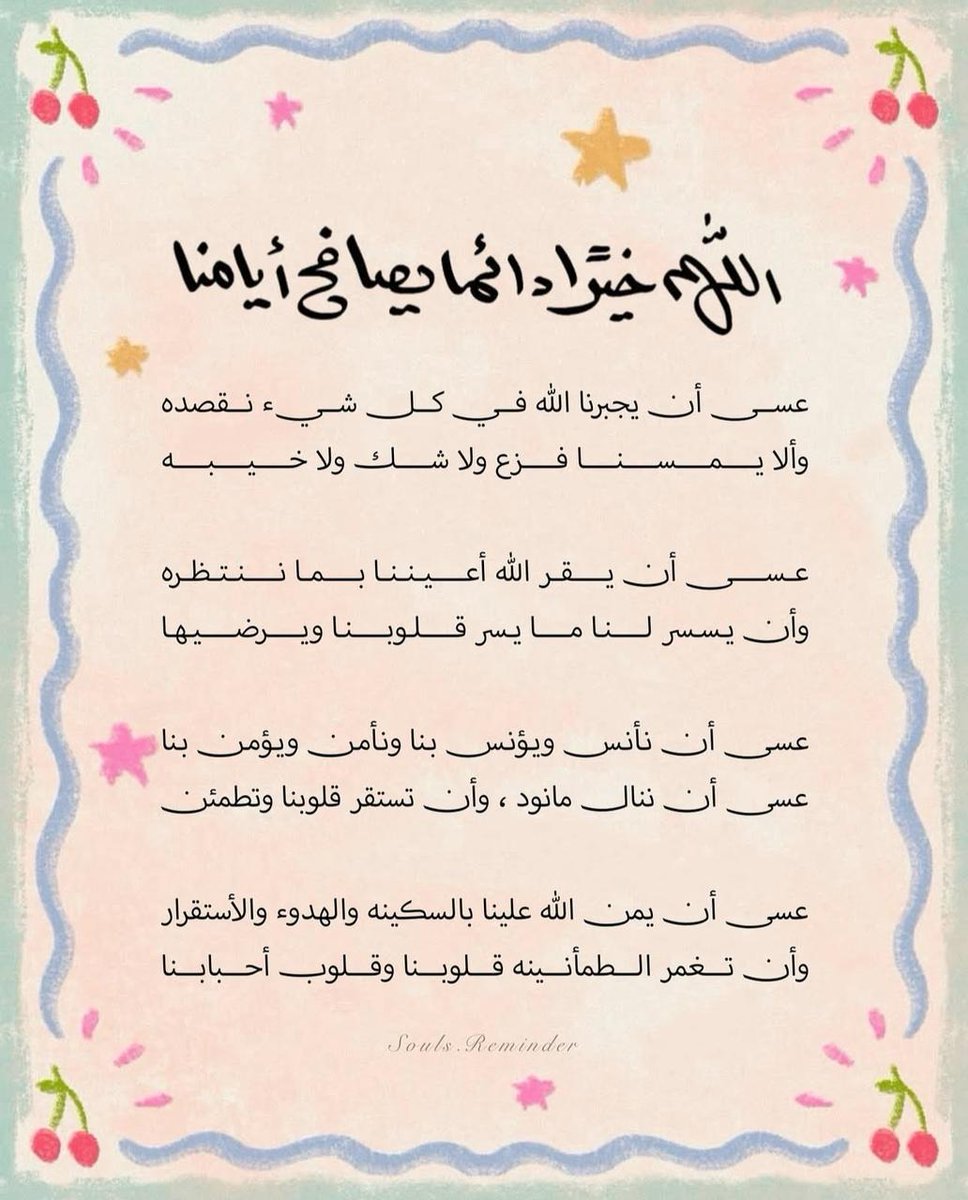 اللّهم خيرًا دائما يصافح أيامنا
عسى أن يجبرنا الله في كل شيء نقصده
وألا يمسنا فزع ولا شك ولا خيبه
عسى أن يقر الله أعيننا بما ننتظره
وأن يسسر لنا ما يسر قلوبنا ويرضيها
عسى أن نأنس ويؤنس بنا ونأمن ويؤمن بنا
عسى أن ننال مانود ، وأن تستقر قلوبنا وتطمئن
عسى أن يمن الله علينا بالسكينه والهدوء والأستقرار
وأن تغمر الطمأنينه قلوبنا وقلوب أحبابنا
Souls.Reminder